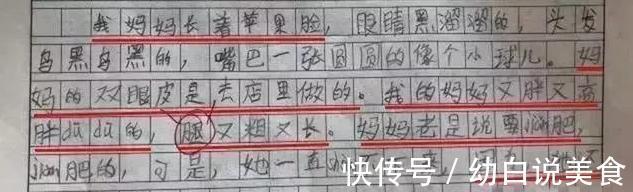 我妈妈长着苹果脸，眼睛黑溜溜的，头发
乌黑乌黑的，嘴巴一张圆圆的像个小球儿。妈
妈的双眼皮是去店里做的。我的妈妈又胖又高
胖dū dū的，腿又粗又长。妈妈老是说要jiǎn肥，
jiǎn肥的，可是，她一直
快传号／幼白说美食